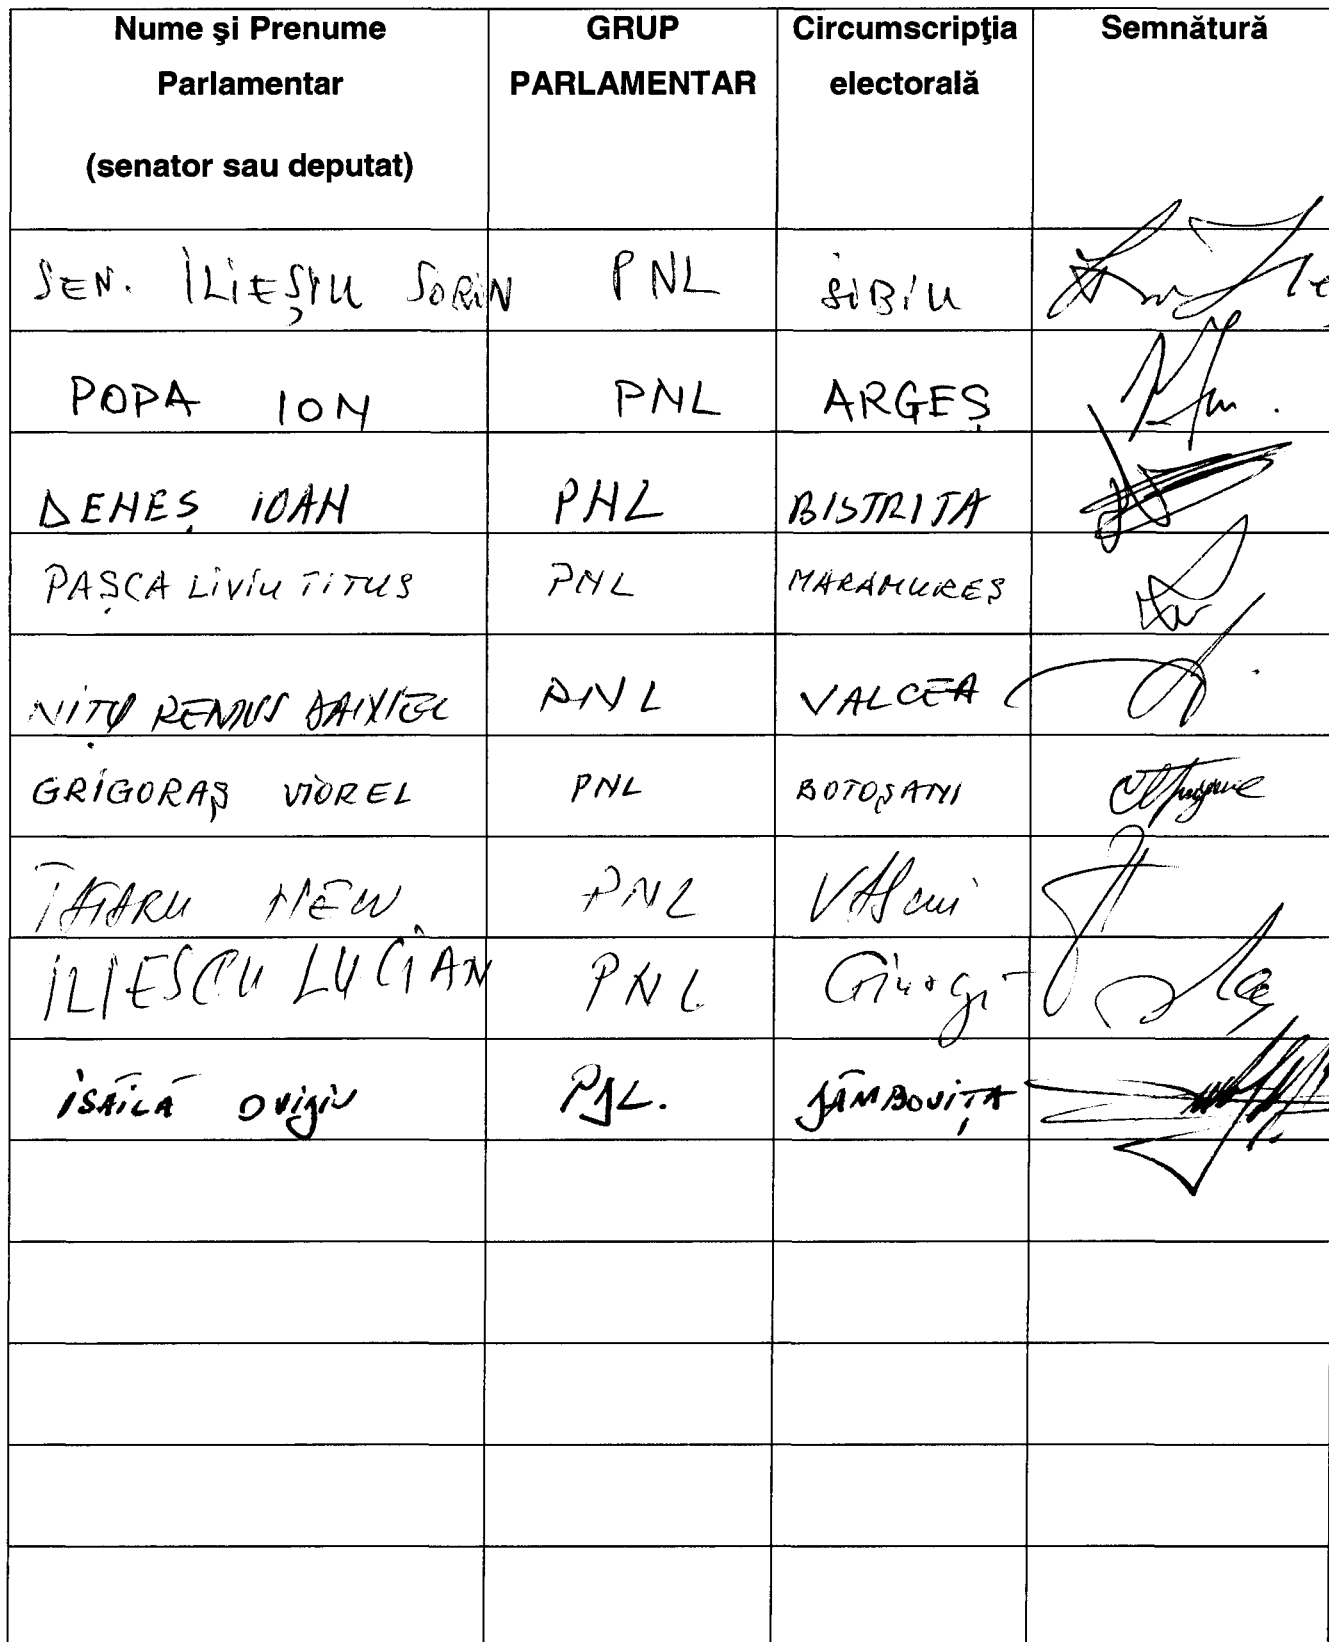 Nume şi Prenume Parlamentar (senator sau deputat) GRUP PARLAMENTAR Circumscripţia electorală Semnătură
SEN. ILIEȘIU SORIN PNL SIBIU
POPA ION PNL ARGEȘ
DENEȘ IOAN PNL BISTRITA
PAȘCA LIVIU TITUS PNL MARAMUREȘ
NIȚU REMUS DANIEL PNL VALCEA
GRIGORAȘ VIOREL PNL BOTOȘANI
TATARU NELU PNL VASLUI
ILIESCU LUCIAN PNL Giurgi
ISĂILĂ OVIDIU PDL. DÂMBOVIȚA